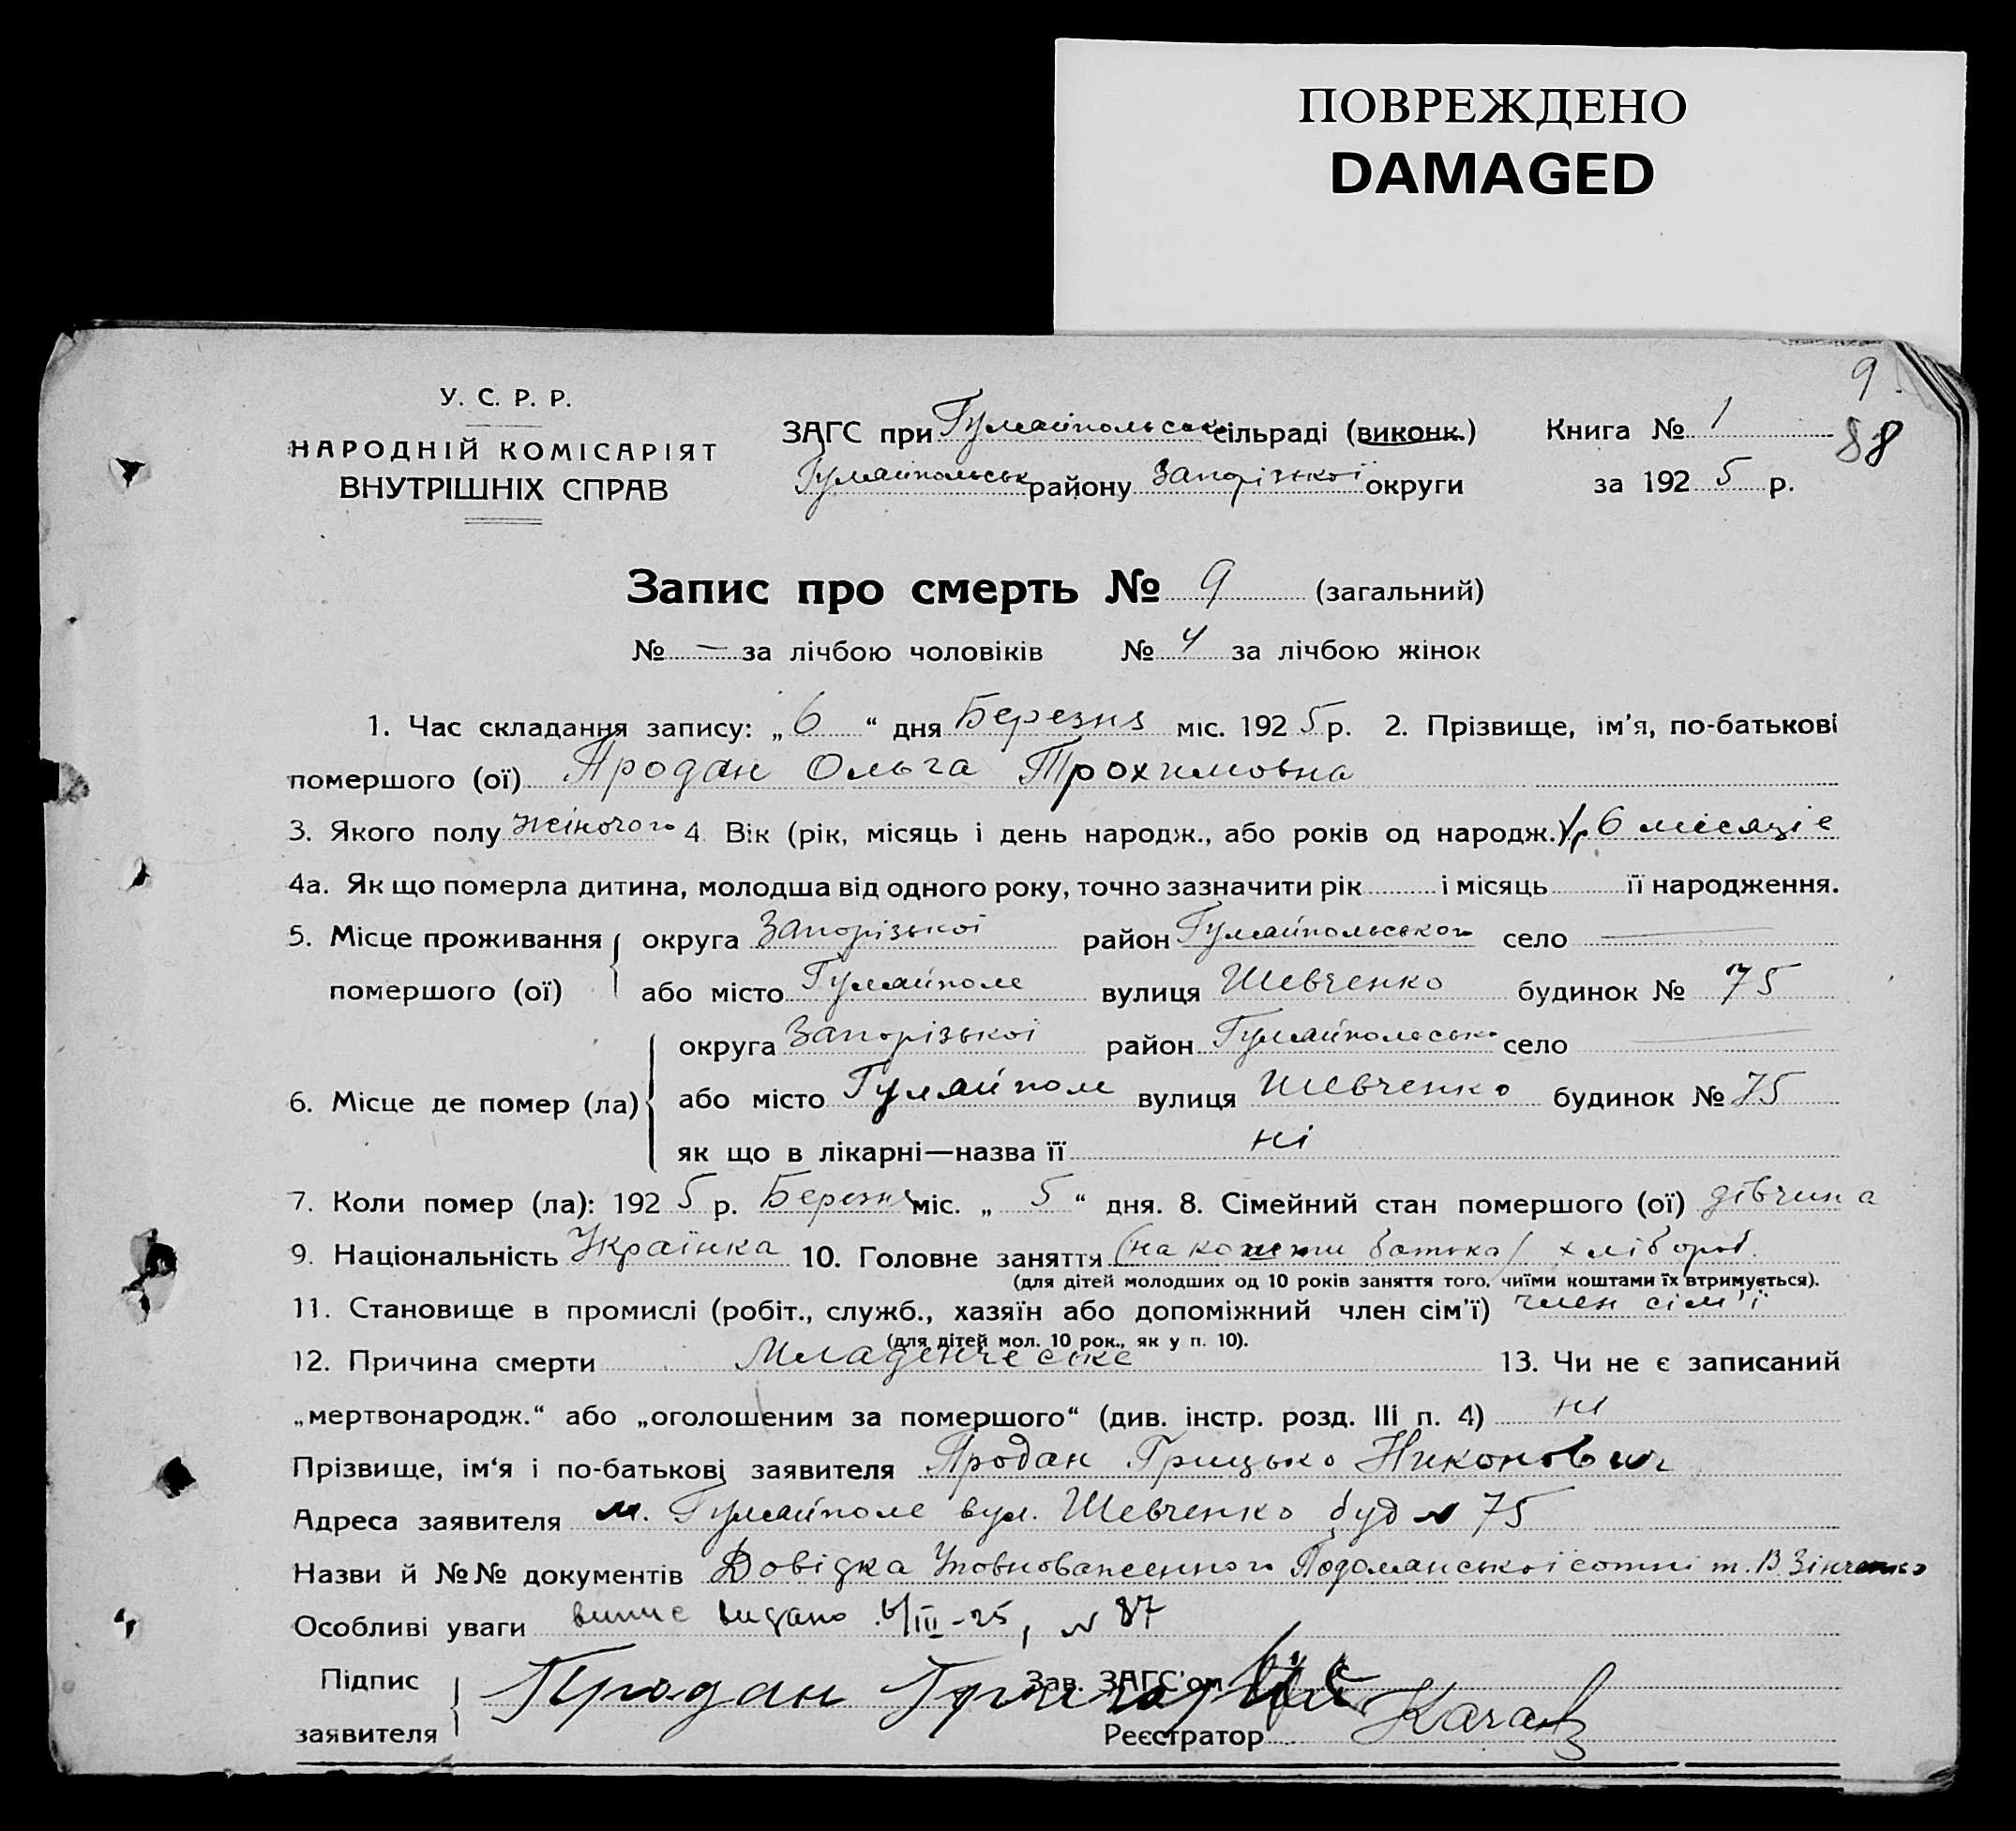 ПОВРЕЖДЕНО
DAMAGED
9
88
У. С. Р. Р.
НАРОДНІЙ КОМІСАРІЯТ
ВНУТРІШНІХ СПРАВ
ЗАГС при Гуляйпольськ сільраді (виконк.)
Гуляйпольськ району Запорізької округи
Книга № 1
за 1925 р.
Запис про смерть № 9 (загальний)
№ — за лічбою чоловіків № 4 за лічбою жінок
1. Час складання запису: „6“ дня Березня міс. 1925 р. 2. Прізвище, ім'я, по-батькові
помершого (ої) Продан Ольга Трохимовна
3. Якого полу жіночого 4. Вік (рік, місяць і день народж., або років од народж.) 6 місяців
4а. Як що померла дитина, молодша від одного року, точно зазначити рік і місяць її народження.
5. Місце проживання помершого (ої) округа Запорізької район Гуляйпольського село —
або місто Гуляйполе вулиця Шевченко будинок № 75
6. Місце де помер (ла) округа Запорізької район Гуляйпольськ село —
або місто Гуляйполе вулиця Шевченко будинок № 75
як що в лікарні—назва її ні
7. Коли помер (ла): 1925 р. Березня міс. „5“ дня. 8. Сімейний стан помершого (ої) дівчина
9. Національність Українка 10. Головне заняття (на кошти батька) хлібороб.
(для дітей молодших од 10 років заняття того, чиїми коштами їх втримується).
11. Становище в промислі (робіт., служб., хазяїн або допоміжний член сім'ї) член сім'ї
(для дітей мол. 10 рок., як у п. 10).
12. Причина смерти Младенческе 13. Чи не є записаний
„мертвонародж.“ або „оголошеним за помершого“ (див. інстр. розд. III п. 4) ні
Прізвище, ім'я і по-батькові заявителя Продан Грицько Никонович
Адреса заявителя м. Гуляйполе вул. Шевченко буд № 75
Назви й №№ документів Довідка Уповноваженного Подолянської сотні т. В. Зінченко
Особливі уваги випис видано 6/III-25, № 87
Підпис заявителя Продан Григорій
Зав. ЗАГС'ом
Реєстратор